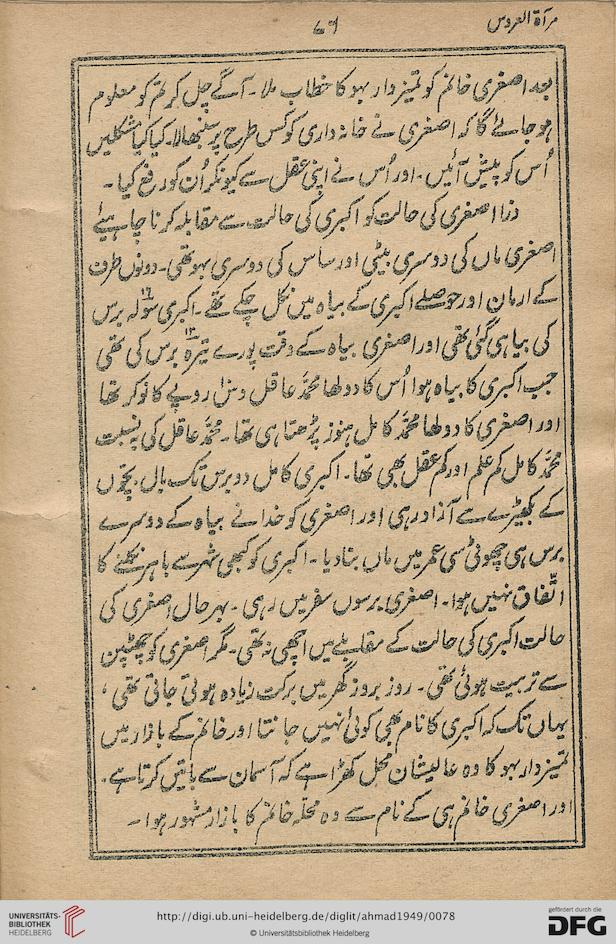 مرآۃ العروس
۷۶
بعد اصغری خانم کو تمیزدار بہو کا خطاب ملا۔ آگے چل کر تم کو معلوم
ہو جائے گا کہ اصغری نے خانہ داری کو کس طرح پر سنبھالا۔ کیا کیا مشکلیں
اُس کو پیش آئیں۔ اور اُس نے اپنی عقل سے کیونکر اُن کو رفع کیا۔
ذرا اصغری کی حالت کو اکبری کی حالت سے مقابلہ کرنا چاہیئے
اصغری ماں کی دوسری بیٹی اور ساس کی دوسری بہو تھی۔ دونوں طرف
کے ارمان اور حوصلے اکبری کے بیاہ میں نکل چکے تھے۔ اکبری سولہ ۱۶ برس
کی بیاہی گئی تھی اور اصغری بیاہ کے وقت پورے تیرہ ۱۳ برس کی تھی
جب اکبری کا بیاہ ہوا اُس کا دولھا محمّد عاقل دس روپے کا نوکر تھا
اور اصغری کا دولھا محمّد کامل ہنوز پڑھتا ہی تھا۔ محمّد عاقل کی بہ نسبت
محمّد کامل کم علم اور کم عقل بھی تھا۔ اکبری کامل دو برس تک بال بچّوں
کے بکھیڑے سے آزاد رہی اور اصغری کو خدا نے بیاہ کے دوسرے
برس ہی چھوٹی سی عمر میں ماں بنا دیا۔ اکبری کو کبھی شہر سے باہر نکلنے کا
اتّفاق نہیں ہوا۔ اصغری برسوں سفر میں رہی۔ بہر حال اصغری کی
حالت اکبری کی حالت کے مقابلے میں اچھی نہ تھی۔ مگر اصغری کو چھٹپن
سے تربیت ہوئی تھی۔ روز بروز گھر میں برکت زیادہ ہوتی جاتی تھی،
یہاں تک کہ اکبری کا نام بھی کوئی نہیں جانتا اور خانم کے بازار میں
تمیزدار بہو کا وہ عالیشان محل کھڑا ہے کہ آسمان سے باتیں کرتا ہے۔
اور اصغری خانم ہی کے نام سے وہ محلّہ خانم کا بازار مشہور ہوا۔
UNIVERSITÄTS-
BIBLIOTHEK
HEIDELBERG
http://digi.ub.uni-heidelberg.de/diglit/ahmad1949/0078
© Universitätsbibliothek Heidelberg
gefördert durch die
DFG